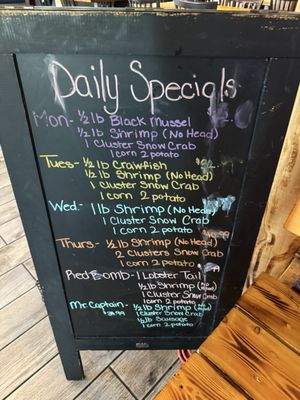 Daily Specials
Mon- ½ lb Black Mussel
½ lb Shrimp (No Head)
1 Cluster Snow Crab
1 corn 2 potato
Tues- ½ lb Crawfish
½ lb Shrimp (No Head)
1 Cluster Snow Crab
1 corn 2 potato
Wed- 1 lb Shrimp (No Head)
1 Cluster Snow Crab
1 corn 2 potato
Thurs- ½ lb Shrimp (No Head)
2 Clusters Snow Crab
1 corn 2 potato
Red Bomb- 1 Lobster Tail
½ lb Shrimp (No Head)
1 Cluster Snow Crab
1 corn 2 potato
Mr Captain- ½ lb Shrimp (No Head)
1 Cluster Snow Crab
½ lb Sausage
1 corn 2 potato